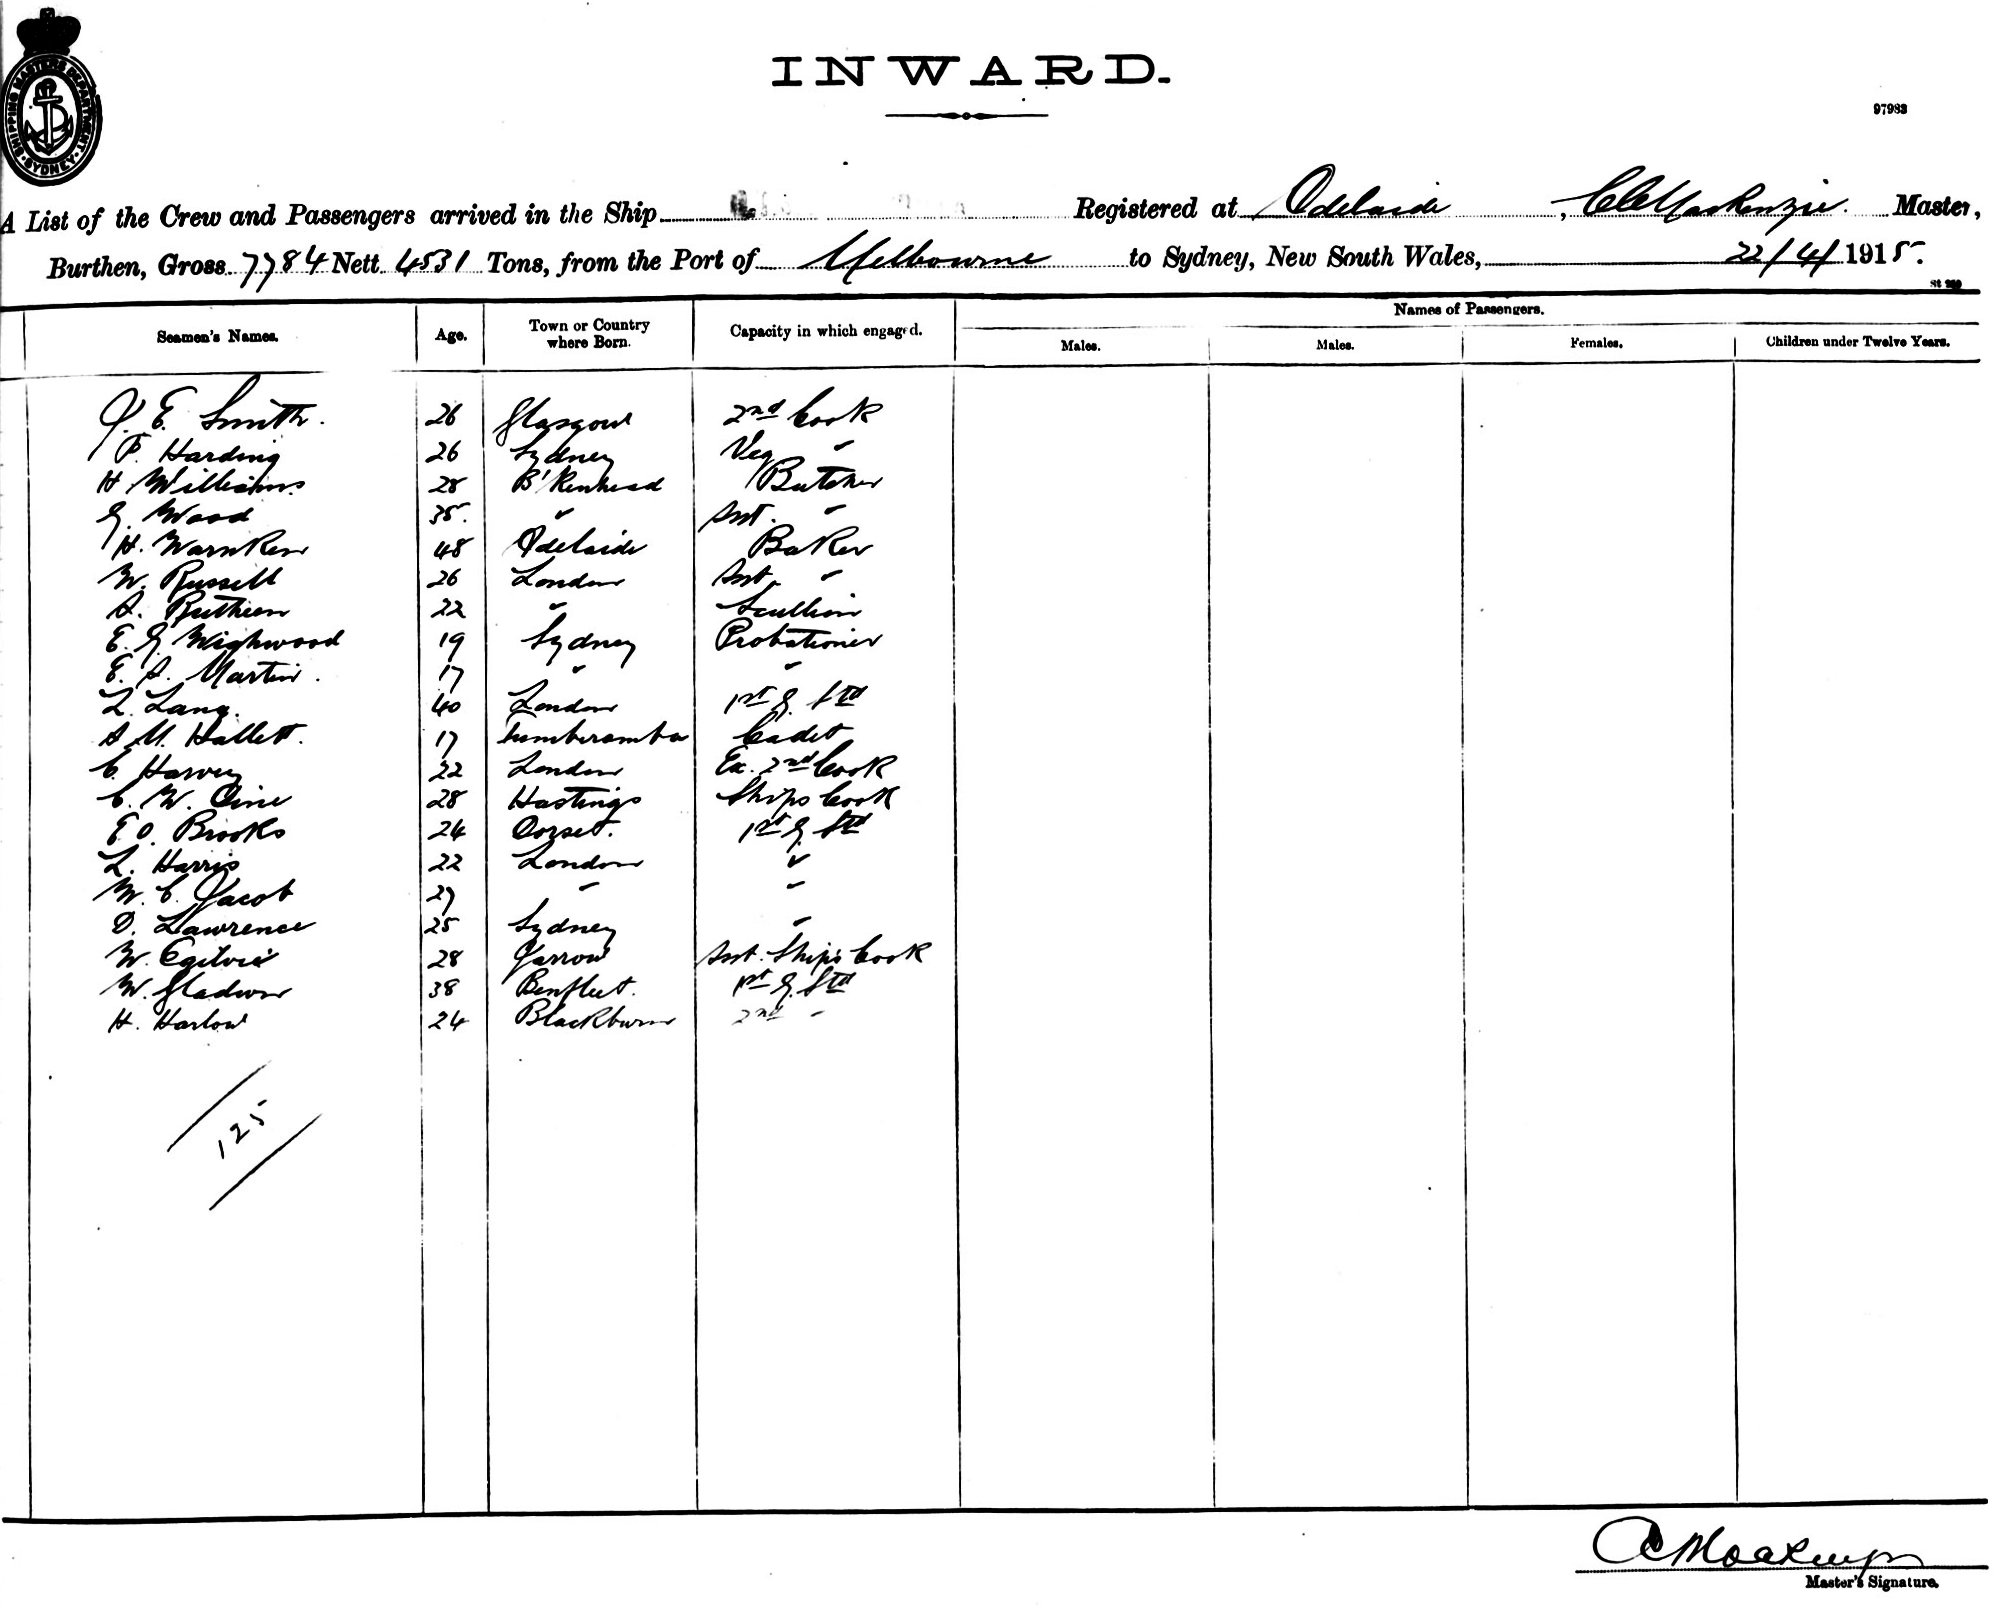 INWARD.
97983
SHIPPING MASTERS DEPARTMENT SYDNEY
A List of the Crew and Passengers arrived in the Ship Registered at Adelaide, Mackenzie. Master,
Burthen, Gross 7784 Nett 4531 Tons, from the Port of Melbourne to Sydney, New South Wales, 22/4/1915.
Names of Passengers.
Seamen's Names. Age. Town or Country where Born. Capacity in which engaged. Males. Males. Females. Children under Twelve Years.
J. E. Smith. 26 Glasgow 2nd Cook
P. Harding 26 Sydney Veg "
H Williams 28 B'kenhead Butcher
G. Wood 35. " Asst. "
H. Warnken 48 Adelaide Baker
W. Russell 26 London Asst. "
A. Ruthven 22 " Scullion
E. G. Wighwood 19 Sydney Probationer
E. A. Martin. 17 " "
L. Lang. 40 London 1st G. Std
A M. Hallett. 17 Tumberamba Cadet
C. Harvey 22 London Ex. 2nd Cook
C. W. 28 Hastings Ships Cook
E O. Brooks 24 Dorset. 1st G. Std
L. Harris 22 London "
W. C. Jacob 27 " "
D. Lawrence 25 Sydney "
W. Ogilvie 28 Yarrow Asst. Ship's Cook
W. Gladwin 38 Benfleet. 1st G. Std
H. Harlow 24 Blackburn 2nd "
125
Master's Signature.